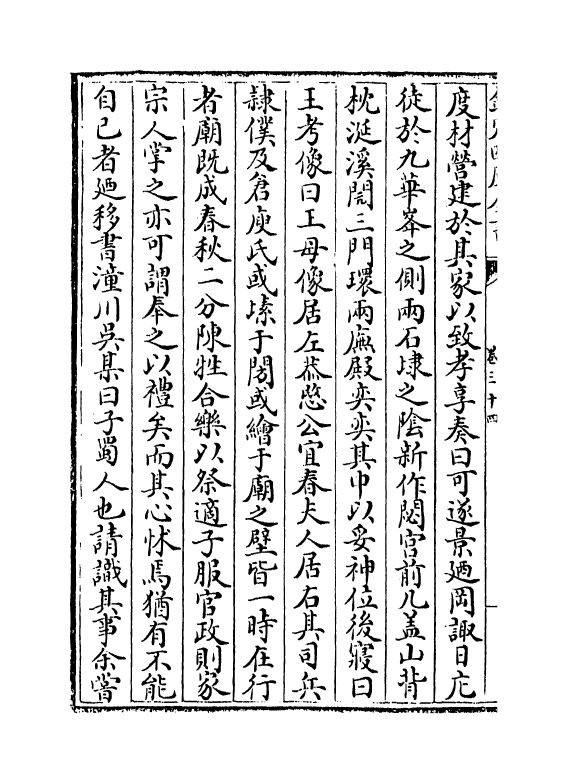 欽定四庫全書
卷三十四
度材營建於其家以致孝享奏曰可遂景廼岡諏日庀
徒於九華峯之側兩石埭之陰新作閟宮前几盖山背
枕涎溪誾三門環兩廡殿奕奕其中以妥神位後寢曰
王考像曰王母像居左恭愍公宜春夫人居右其司兵
隷僕及倉庾氏或塐于閍或繪于廟之壁皆一時在行
者廟既成春秋二分陳牲合樂以祭適子服官政則家
宗人掌之亦可謂奉之以禮矣而其心怵焉猶有不能
自已者廼移書潼川吳某曰子蜀人也請識其事余嘗